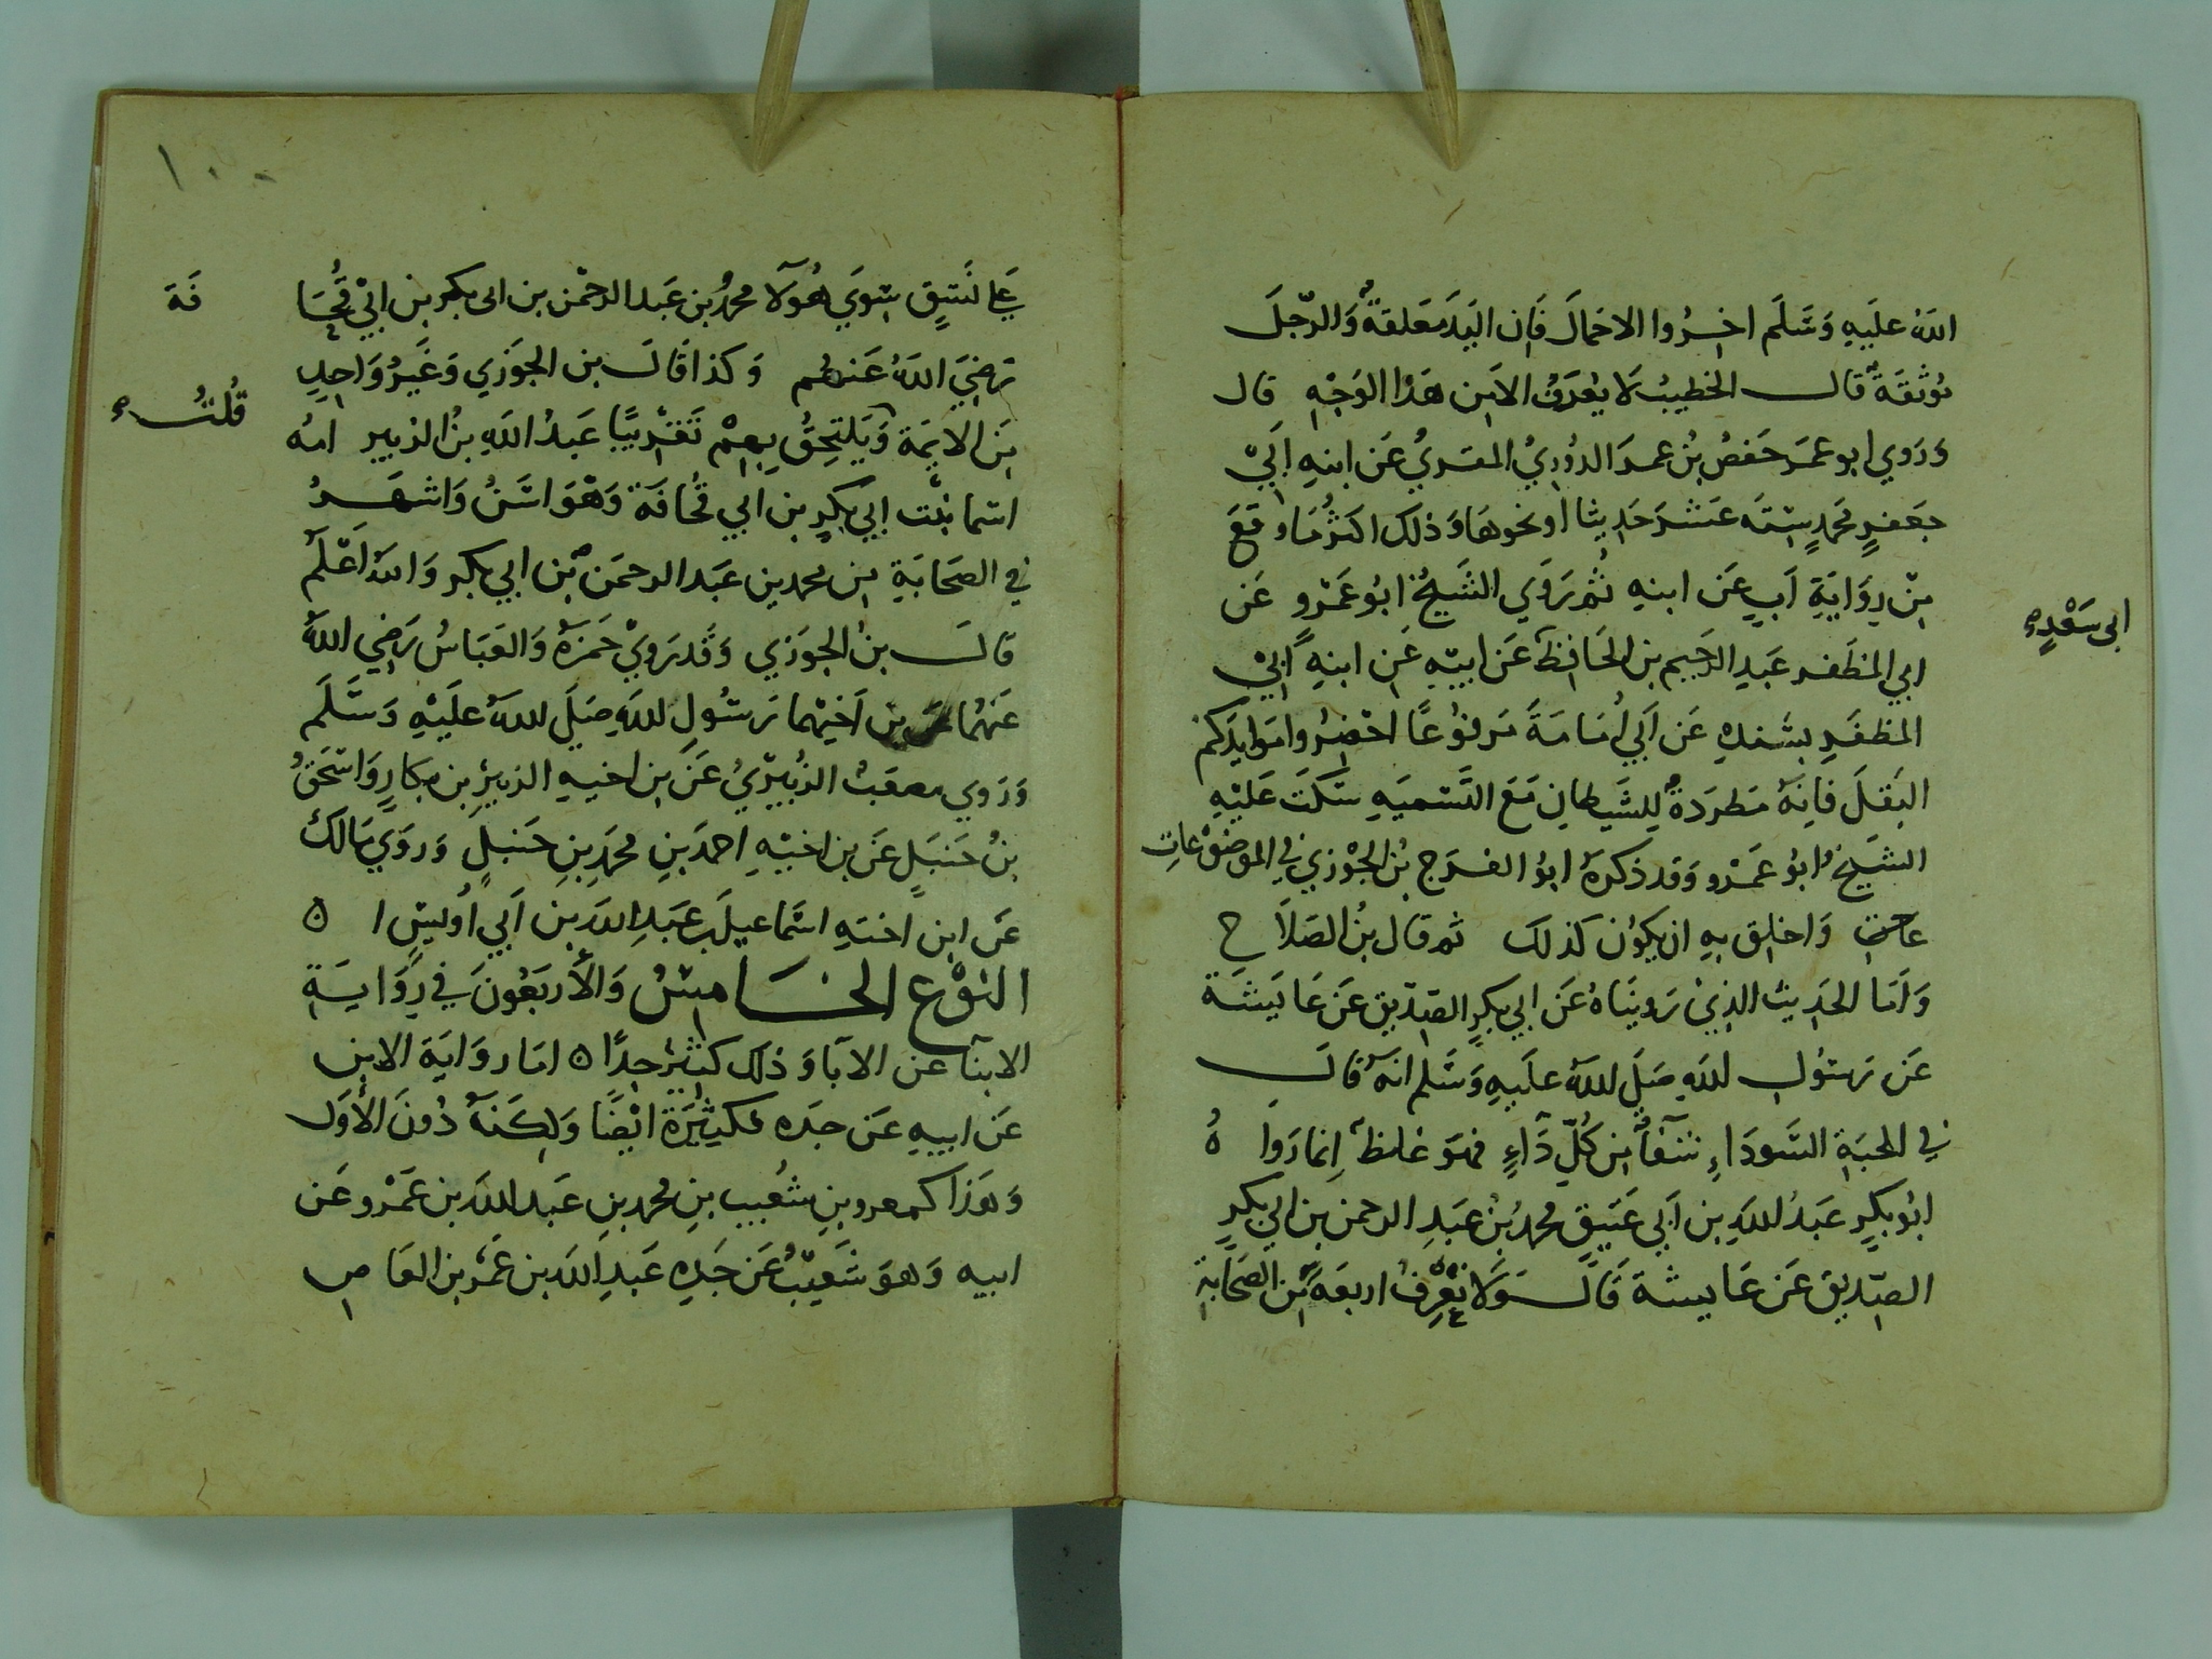 الله عليه وسلم اخروا الاحمال فان اليد معلقة والرجل
موثقة قال الخطيب لا يعرف الا من هذا الوجه قال
وروي ابو عمر حفص بن عمر الدوري المقري عن ابنه ابي
جعفر محمد ستة عشر حديثا او نحوها وذلك اكثر ما وقع
من رواية اب عن ابنه ثم روي الشيخ ابو عمرو عن
ابي المظفر عبد الرحيم بن الحافظ عن ابيه عن ابنه ابي
ابى سعد
المظفر بسنده عن ابي امامة مرفوعا احضروا موايدكم
البقل فانه مطردة للشيطان مع التسميه سكت عليه
الشيخ ابو عمرو وقد ذكره ابو الفرج بن الجوزي في الموضوعات
واخلق به ان يكون كذلك ثم قال بن الصلاح
واما الحديث الذي رويناه عن ابي بكر الصديق عن عايشة
عن رسول الله صلى الله عليه وسلم انه قال
في الحبة السوداء شفا من كل داء فهو غلظ انما رواه
ابو بكر عبد الله بن ابي عتيق محمد بن عبد الرحمن بن ابي بكر
الصديق عن عايشة قال ولا نعرف اربعة من الصحابة
١٠٠
على نسق سوي هولا محمد بن عبد الرحمن بن ابى بكر بن ابي قحا
فة
رضي الله عنهم وكذا قال بن الجوزي وغير واحد
قلت
من الايمة ويلتحق بهم تقريبا عبد الله بن الزبير امه
اسما بنت ابي بكر بن ابي قحافة وهو اسن واشهر
في الصحابة من محمد بن عبد الرحمن بن ابي بكر والله اعلم
قال بن الجوزي وقد روي حمزة والعباس رضي الله
عنهما عن بن اخيهما رسول الله صلى الله عليه وسلم
وروي مصعب الزبيري عن بن اخيه الزبير بن بكار واسحق
بن حنبل عن بن اخيه احمد بن محمد بن حنبل وروي مالك
عن ابن اخته اسماعيل بن عبد الله بن ابي اويس ا ه
النوع الخامس والأربعون في رواية
الابنآ عن الآبا وذلك كثير جدا ه اما رواية الابن
عن ابيه عن جده فكثيرة ايضا ولكنه دون الأول
وهذا كعمرو بن شعيب بن محمد بن عبد الله بن عمرو عن
ابيه وهو شعيب عن جده عبد الله بن عمرو بن العاص